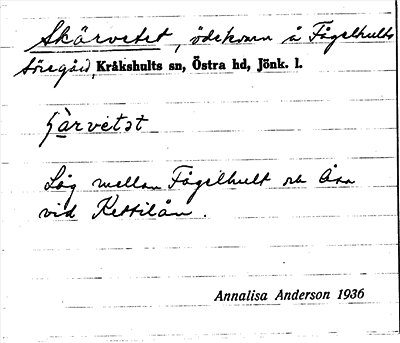 Skärvetet, ödekvarn å Fågelhults
Söregård, Kråkshults sn, Östra hd, Jönk. l.
Låg mellan Fågelhult och Åsa
vid Kettilån.
Annalisa Anderson 1936